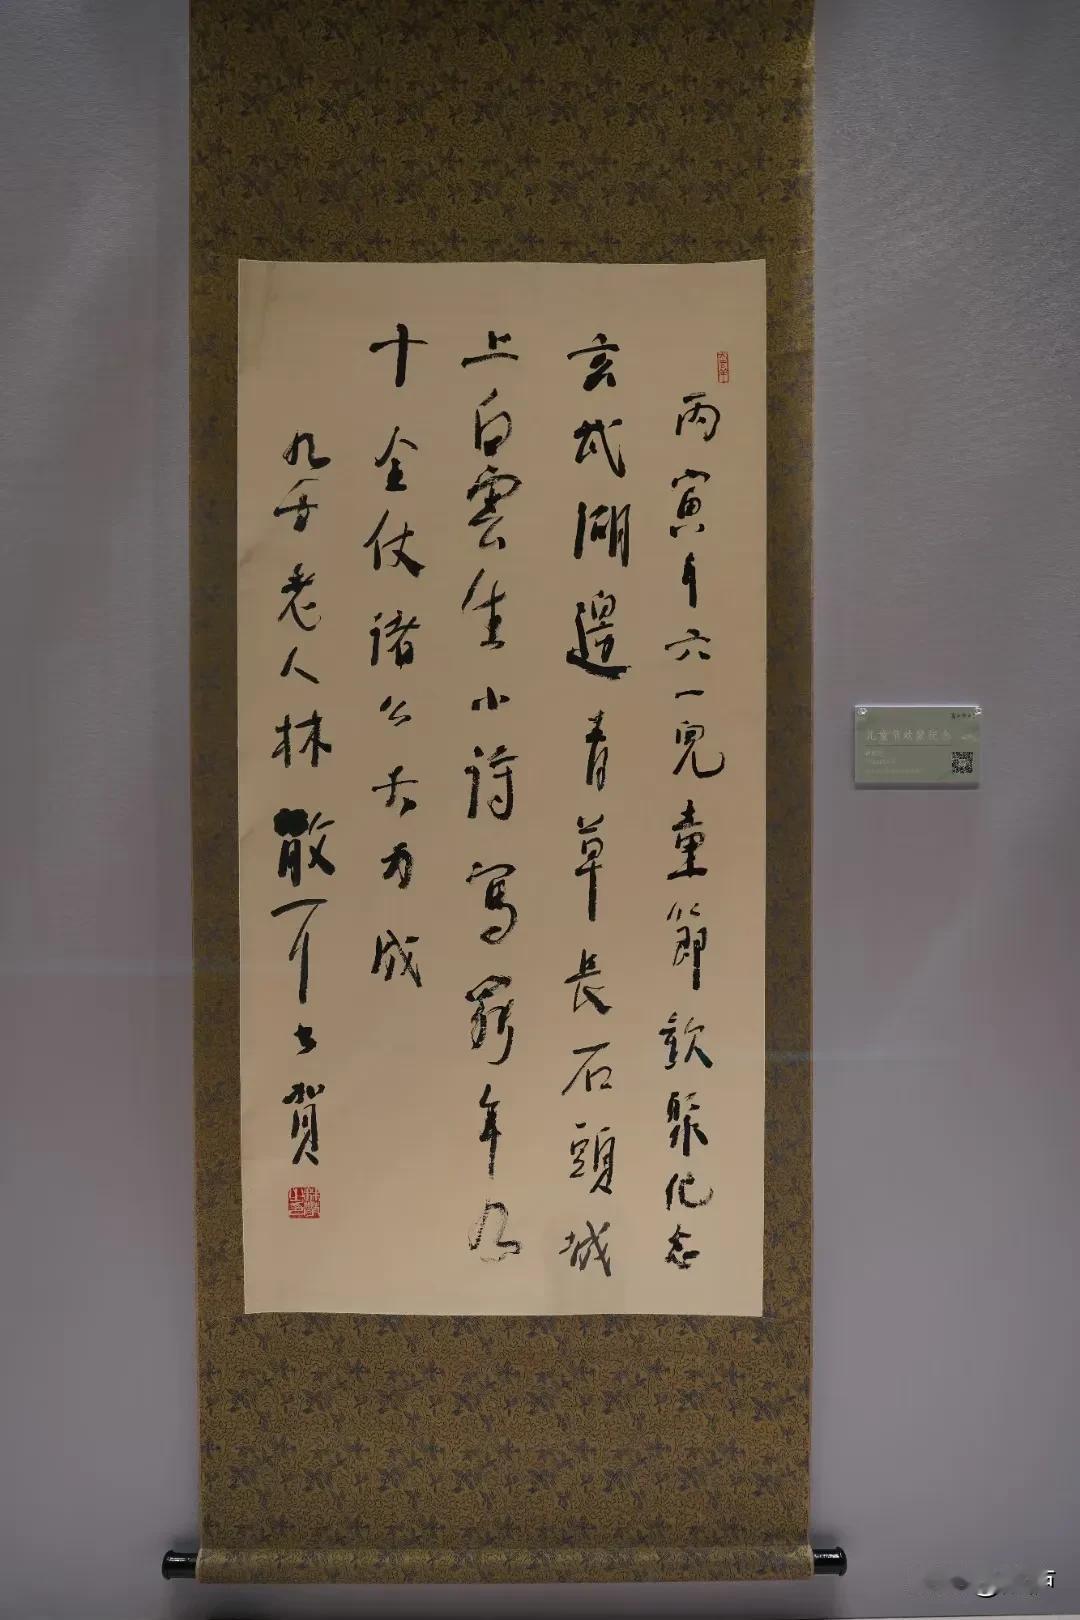 丙寅年六一兒童節歡聚紀念
玄武湖邊青草長石頭城
上白雲生小詩寫罷年九
十全仗諸公大力成
九百老人林散耳書賀
儿童节欢聚纪念